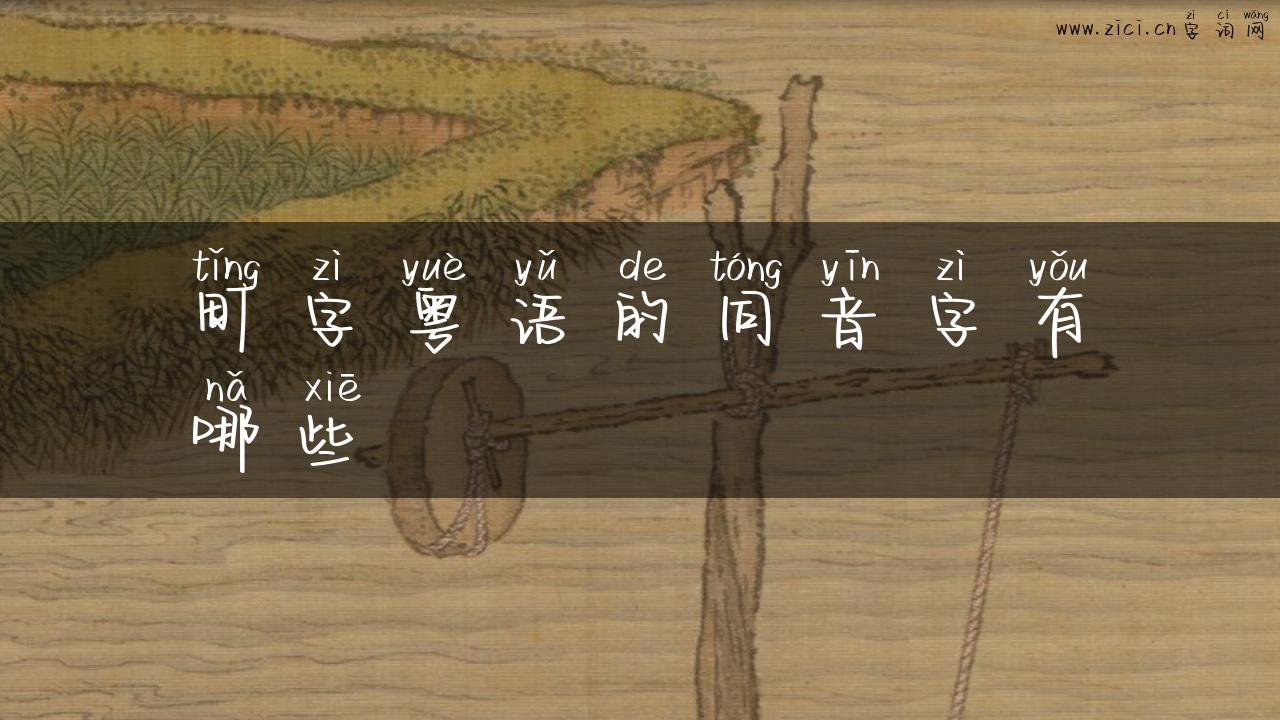 zì cí wǎng
www.zici.cn 字词网
tǐng zì yuè yǔ de tóng yīn zì yǒu
町字粤语的同音字有
nǎ xiē
哪些